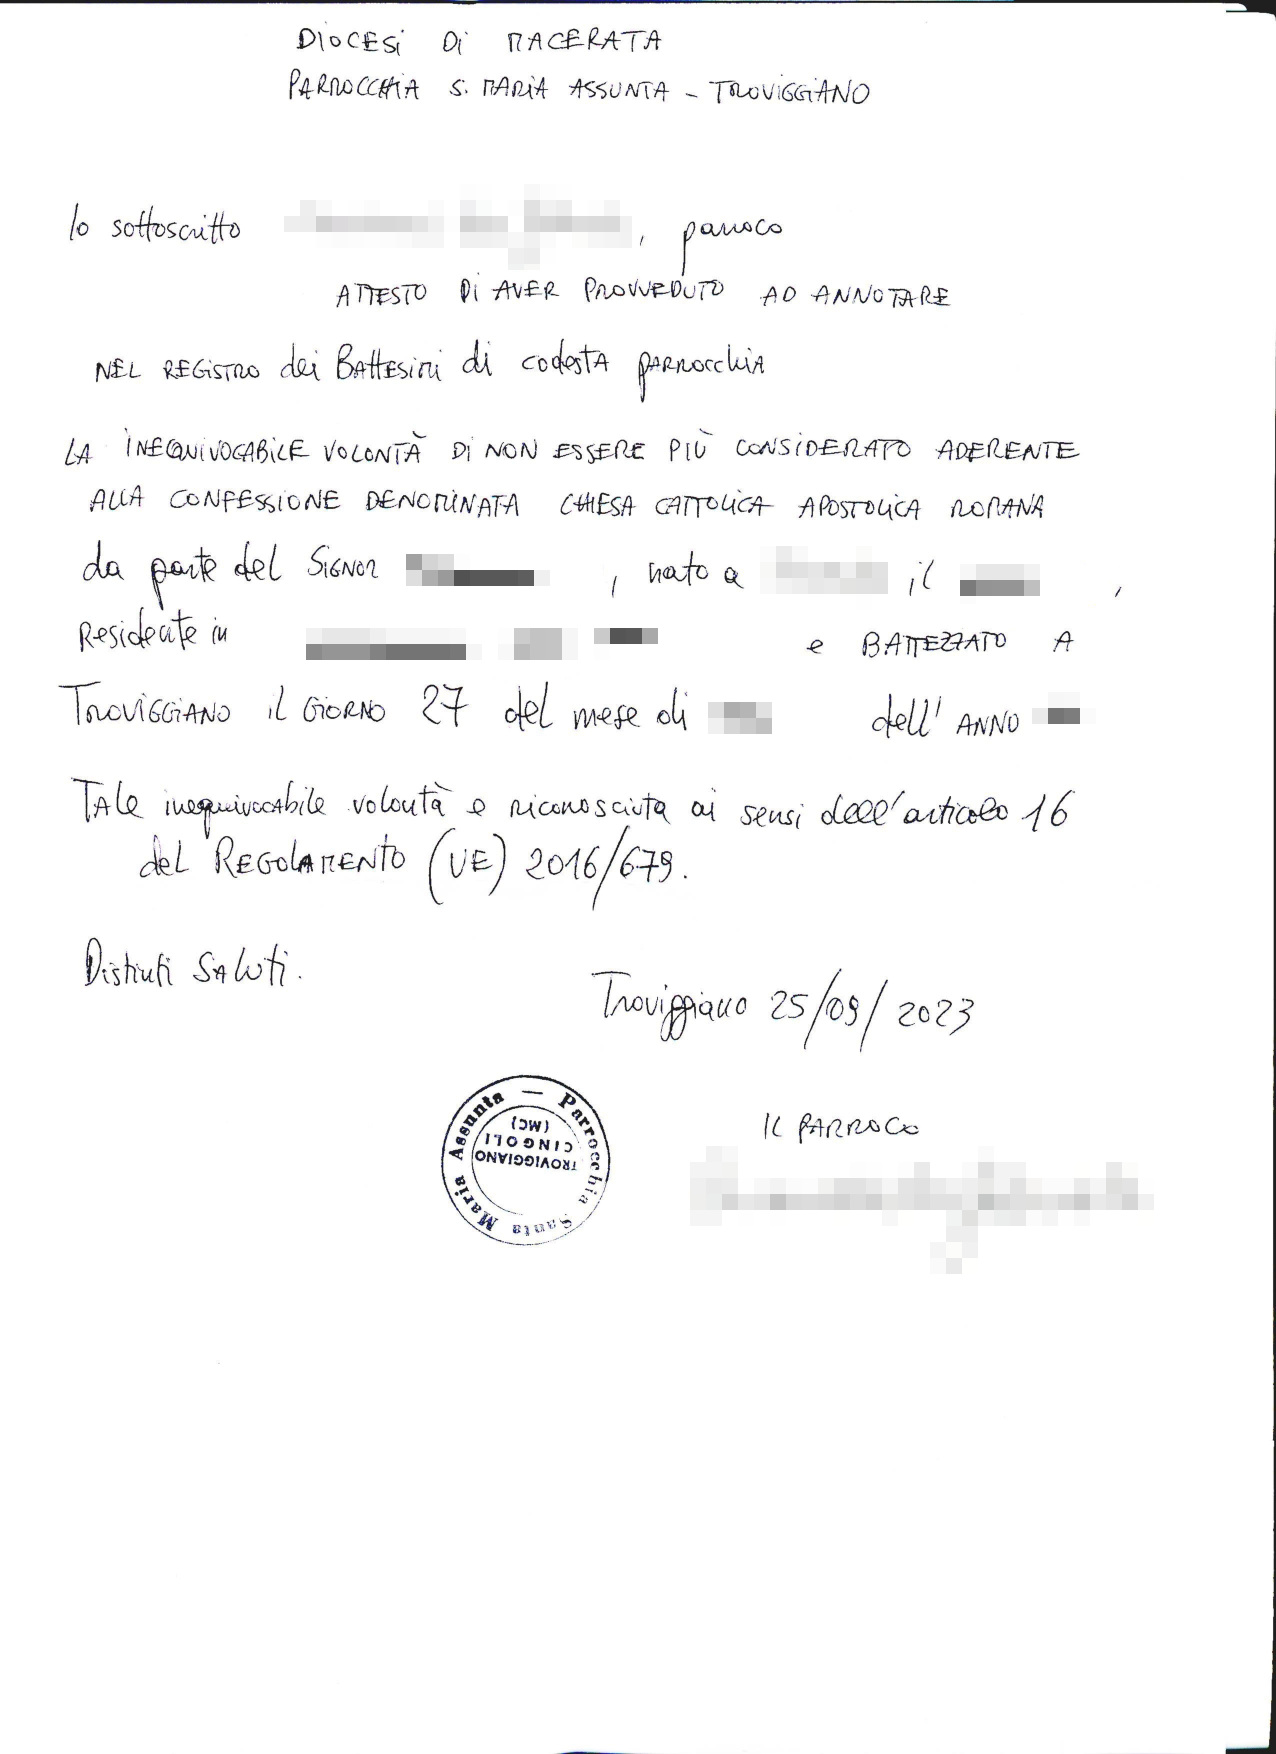 DIOCESI DI MACERATA
PARROCCHIA S. MARIA ASSUNTA - TROVIGGIANO
Io sottoscritto , parroco
ATTESTO DI AVER PROVVEDUTO AD ANNOTARE
NEL REGISTRO dei BATTESIMI di codesta PARROCCHIA
LA INEQUIVOCABILE VOLONTÀ DI NON ESSERE PIÙ CONSIDERATO ADERENTE
ALLA CONFESSIONE DENOMINATA CHIESA CATTOLICA APOSTOLICA ROMANA
da parte del SIGNOR , nato a il ,
Residente in e BATTEZZATO A
TROVIGGIANO il GIORNO 27 del mese di dell' ANNO
TALE inequivocabile volontà e riconosciuta ai sensi dell'articolo 16
del REGOLAMENTO (UE) 2016/679.
Distinti Saluti.
Troviggiano 25/09/2023
IL PARROCO
Parrocchia Santa Maria Assunta —
TROVIGGIANO
CINGOLI
(MC)